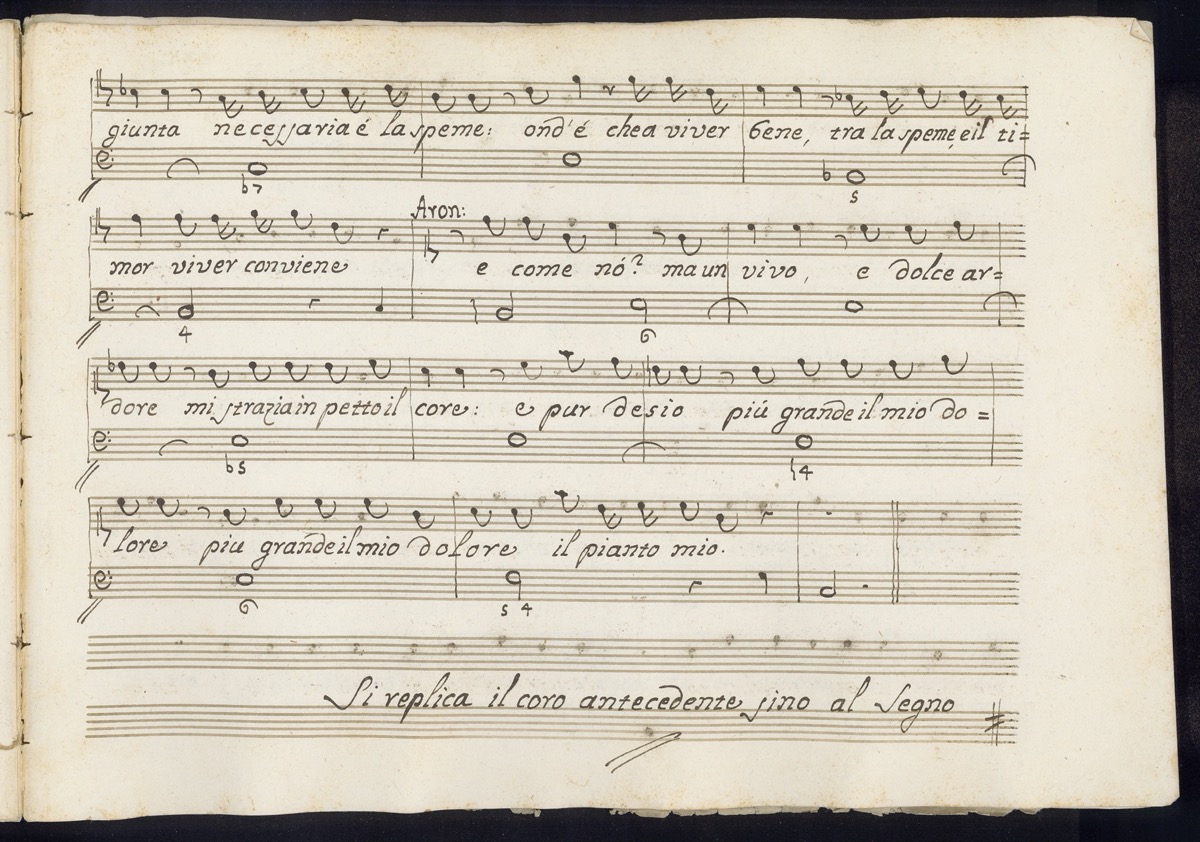 giunta necessaria é la speme: ond'é che a viver bene, tra la speme, e il ti=
b7 b s
Aron:
mor viver conviene e come nó? ma un vivo, e dolce ar=
4 6
dore mi strazia in petto il core: e pur desio piú grande il mio do=
b5 4
lore piu grande il mio dolore il pianto mio.
6 5 4
Si replica il coro antecedente sino al Segno